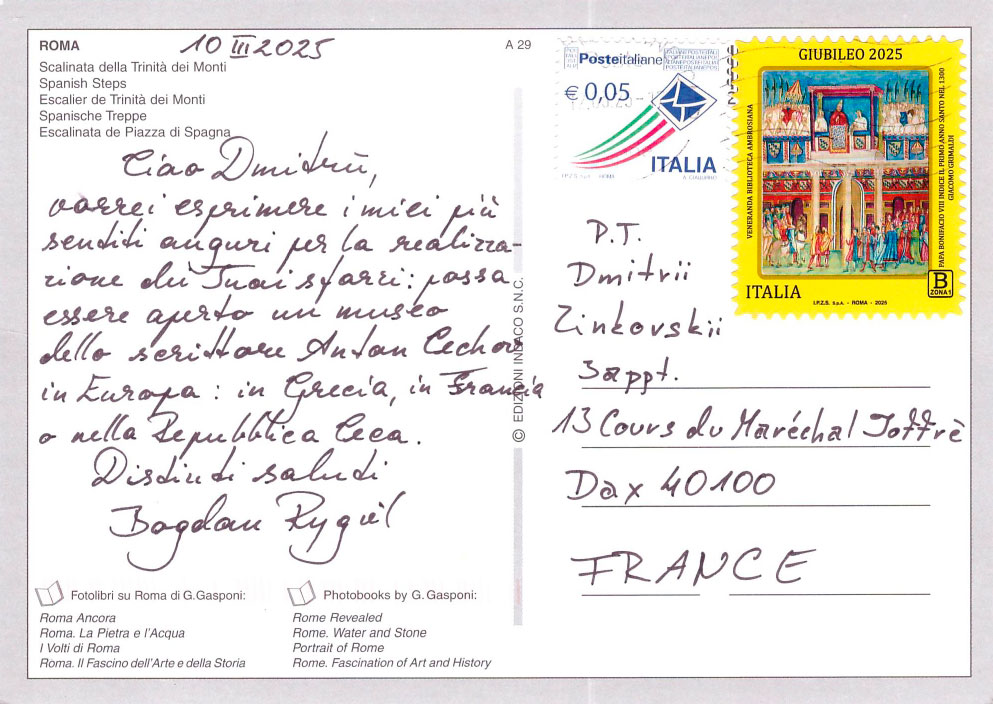 ROMA
10 III 2025
A 29
Scalinata della Trinità dei Monti
Spanish Steps
Escalier de Trinità dei Monti
Spanische Treppe
Escalinata de Piazza di Spagna
Ciao Dmitrii,
vorrei esprimere i miei più
sentiti auguri per la realizza-
zione dei Tuoi sforzi: possa
essere aperto un museo
dello scrittore Anton Cechov
in Europa: in Grecia, in Francia
o nella Repubblica Ceca.
Distinti saluti
Bogdan Rygiel
Fotolibri su Roma di G.Gasponi:
Roma Ancora
Roma. La Pietra e l'Acqua
I Volti di Roma
Roma. Il Fascino dell'Arte e della Storia
Photobooks by G. Gasponi:
Rome Revealed
Rome. Water and Stone
Portrait of Rome
Rome. Fascination of Art and History
© EDIZIONI INDACO S.N.C.
Posteitaliane
€ 0,05
ITALIA
I.P.Z.S. S.p.A. - ROMA
GIUBILEO 2025
VENERANDA BIBLIOTECA AMBROSIANA
PAPA BONIFACIO VIII INDICE IL PRIMO ANNO SANTO NEL 1300
GIACOMO GRIMALDI
ITALIA
I.P.Z.S. S.p.A. - ROMA - 2025
B
ZONA 1
P.T.
Dmitrii
Zinkovskii
3appt.
13 Cours du Maréchal Joffrè
Dax 40100
FRANCE